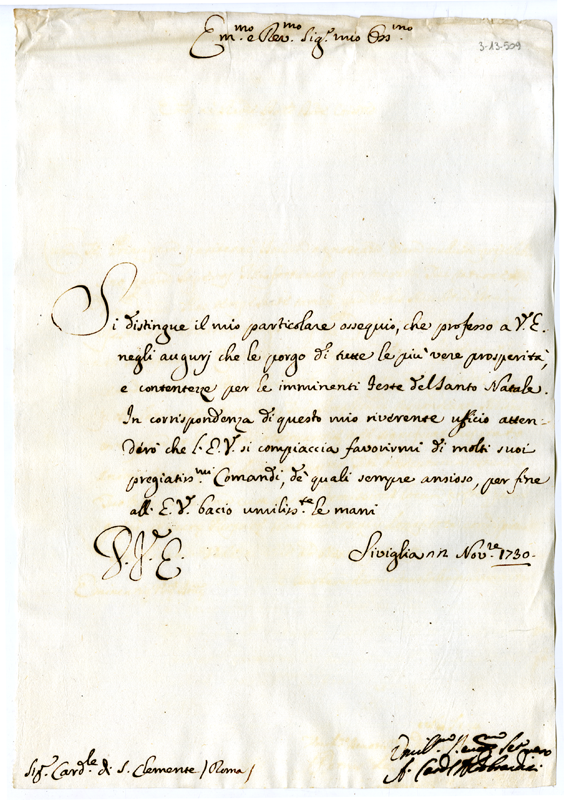 Em.mo e Rev.mo Sig.r mio Oss.mo
3-13-509
Si distingue il mio particolare ossequio, che professo a V.E.
negli augurj che le porgo di tutte le più vere prosperità,
e contentezze per le imminenti feste del Santo Natale.
In corrispondenza di questo mio riverente ufficio atten=
derò che l'E.V. si compiaccia favorirmi di molti suoi
pregiatiss.mi Comandi, de' quali sempre ansioso, per fine
all'E.V. bacio umiliss.te le mani
Siviglia 22 Nov.re 1730.
V.E.
Sig.r Card.le di S. Clemente / Roma /
A. Card. Aldobrandini